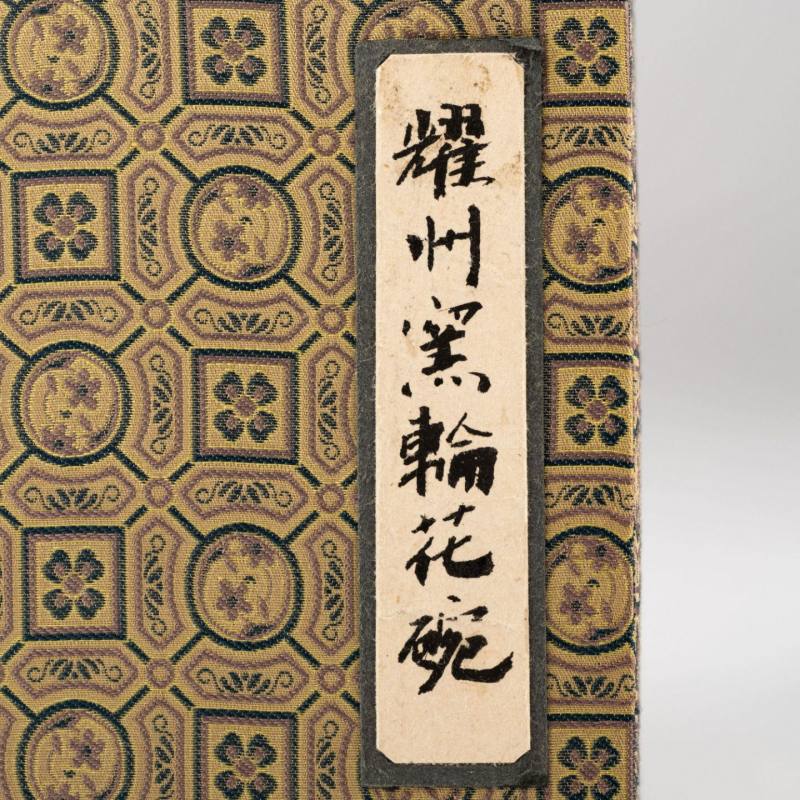 耀州窯輪花碗